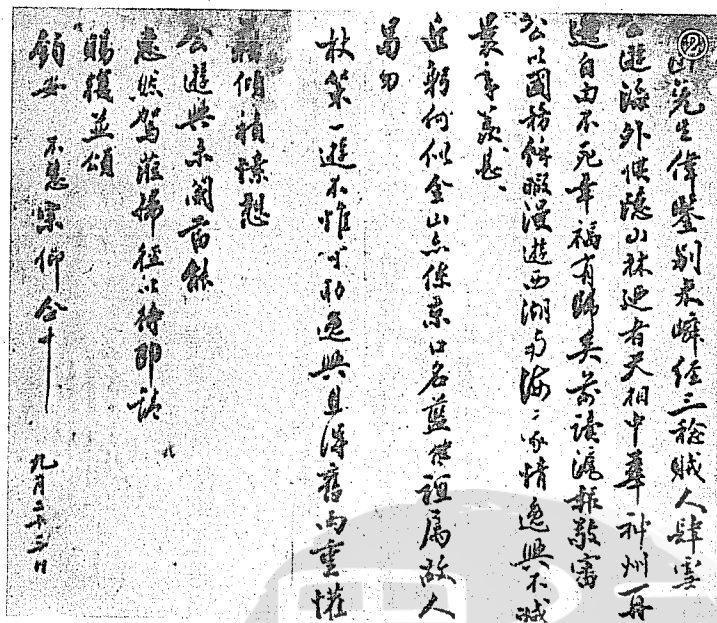 ②山先生偉鑒別來瞬經三稔賊人肆虐
公遯海外僕隱山林迺者天相中華神州再
造自由不死幸福有歸矣前讀滬報敬審
公以國務餘暇漫遊西湖海豪情逸興不減
曩年羨甚
近躬何似金山亦係京口名藍僕誼屬故人
曷勿
杖策一遊不惟可助逸興且得舊雨重懽
藉傾積愫
公遊興未闌苟能
惠然駕蒞掃徑以待即請
賜復並頌
鈞安 不慧宗仰合十
九月二十三日